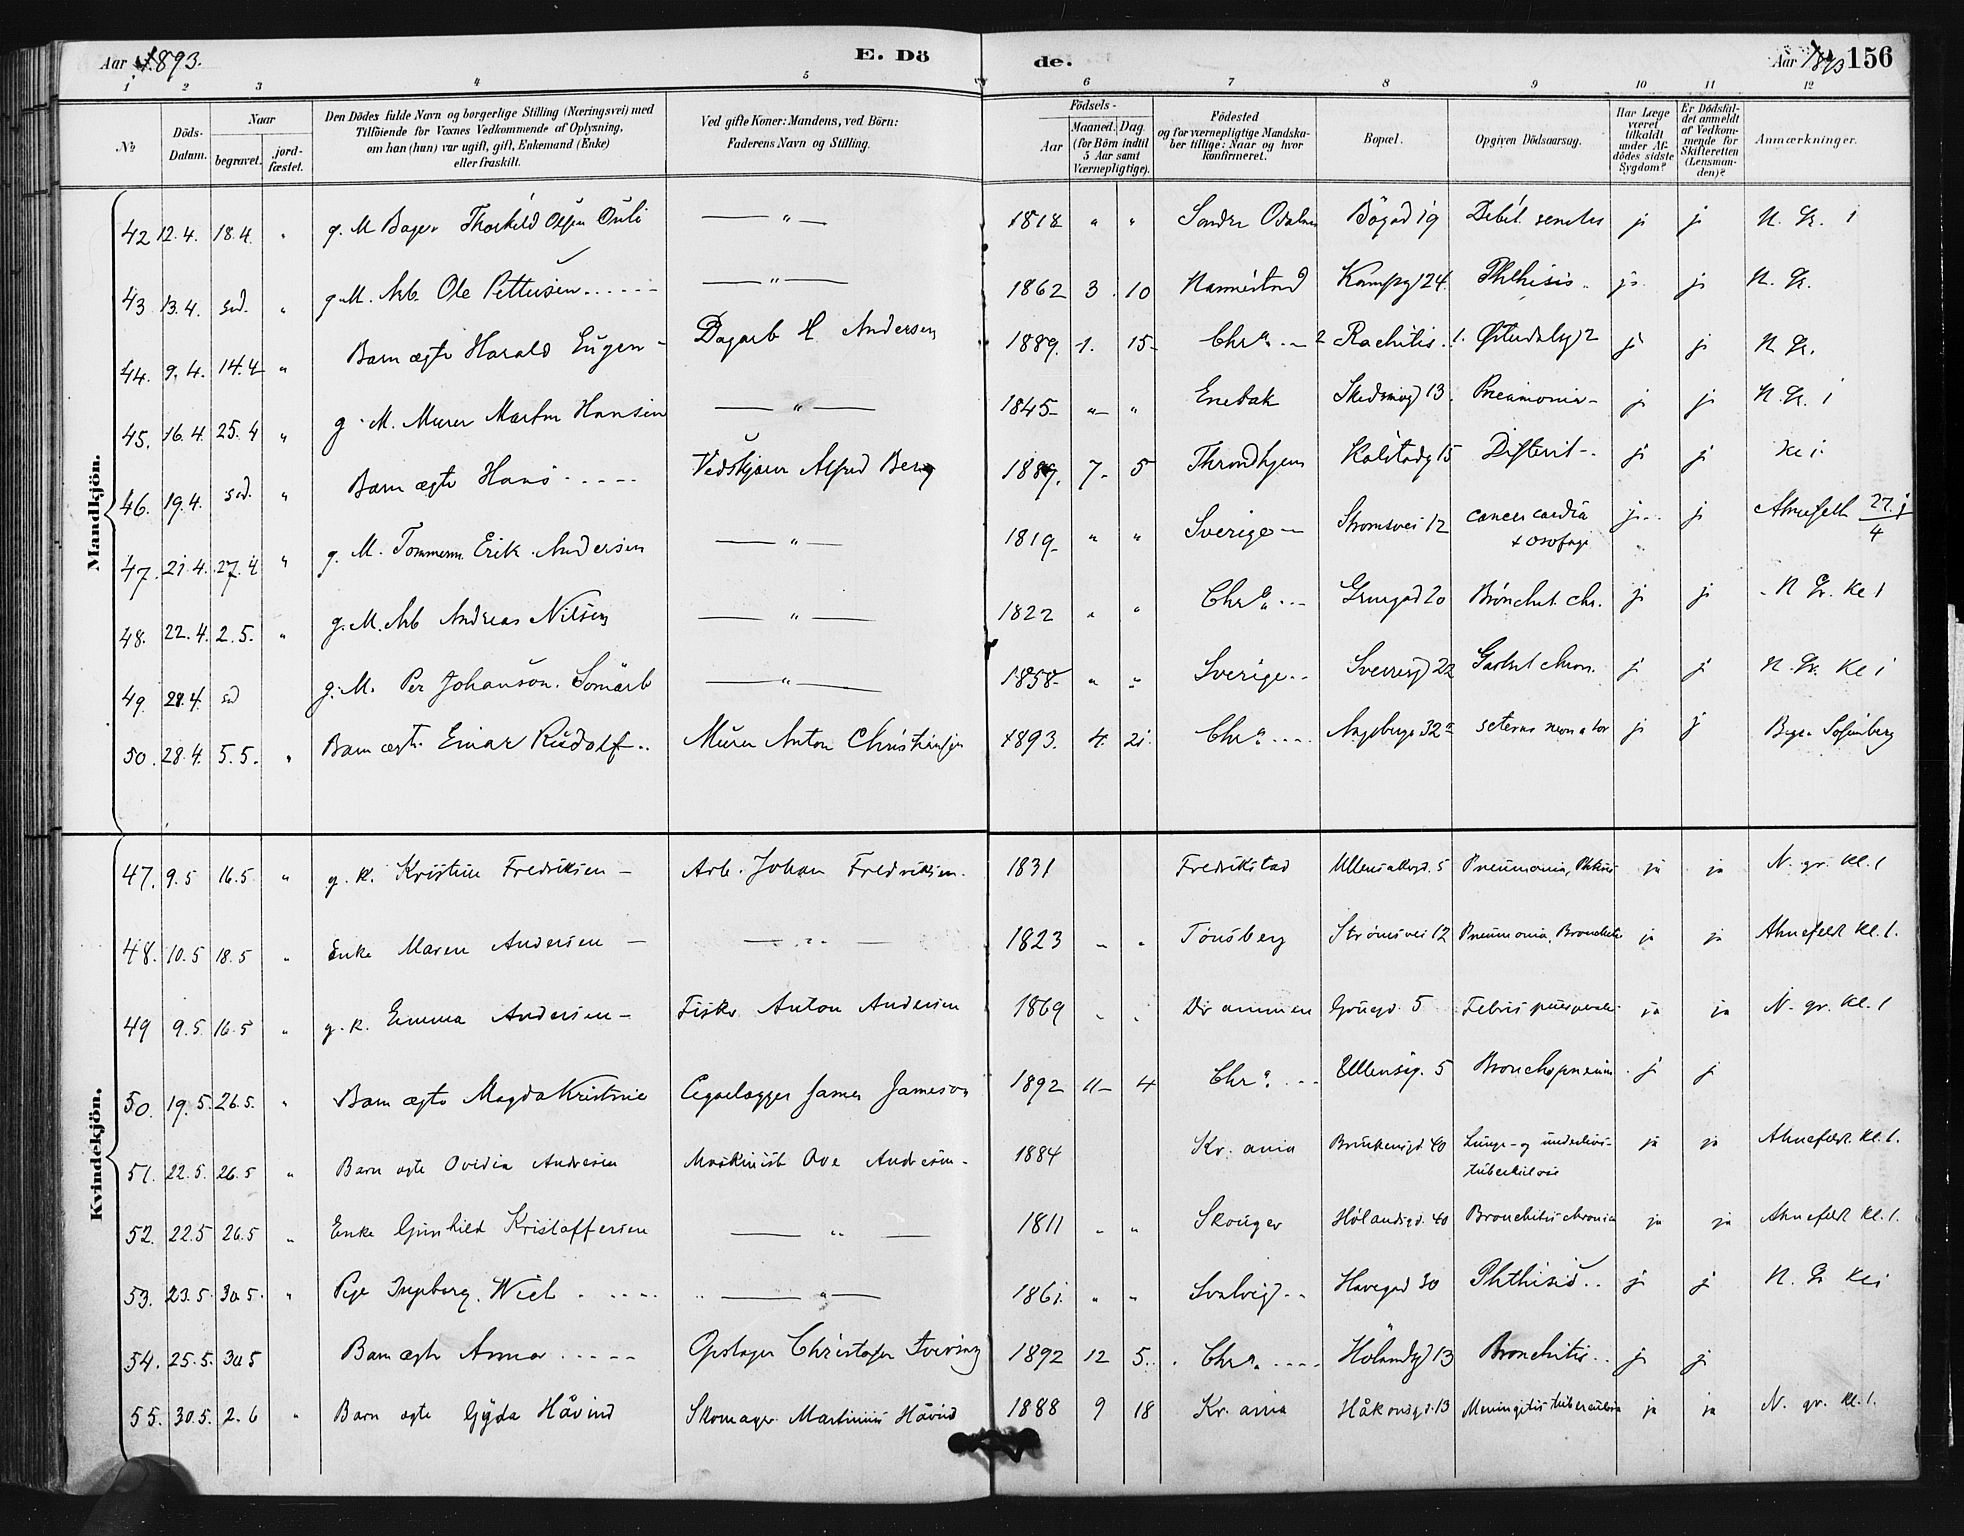 Aar 1893. E. Dö de. Aar 1893 156
1 2 3 4 5 6 7 8 9 10 11 12
No. Döds-Datum. Naar begravet. jord-fæstet. Den Dödes fulde Navn og borgerlige Stilling (Næringsvei) med Tilföiende for Voxnes Vedkommende af Oplysning, om han (hun) var ugift, gift, Enkemand (Enke) eller fraskilt. Ved gifte Koner: Mandens, ved Börn: Faderens Navn og Stilling. Födsels- Aar Maaned. Dag. (for Börn indtil 5 Aar samt Værnepligtige). Födested og for værnepligtige Mandskaber tillige: Naar og hvor konfirmeret. Bopæl. Opgiven Dödsaarsag. Har Læge været tilkaldt under Afdödes sidste Sygdom? Er Dödsfaldet anmeldt af Vedkommende for Skifteretten (Lensmanden)? Anmærkninger.
Mandkjön.
42 12.4. 18.4. " g. M Bager Thorkild Olsen — " — 1818 " " Söndre Bögad 19 Debil. senilis j j N. Gr. 1
43 13.4. sd. " g. M. Arb. Ole Pettersen — " — 1862 3 10 Kampg 24. Phthisis. ja. j N. Gr.
44. 9.4. 14.4 " Barn ægte Harald Eugen - Dagarb H Andersen 1889. 1. 15 Chra. — 2 Rachitis. 1. Østerdalsg 2 j j N Gr.
45. 16.4. 25.4 " g. M. Murer Martin Hansen — " — 1845 " " Enebak Skedsmog 13. Pneumonia - j j N. Gr. i
46. 19.4. sd. " Barn ægte Hans Vedskjærer Alfred Berg 1889. 7 5 Throndhjem Kolstadg 15 Difterit j j Kl i
47. 21.4. 27.4 " g. M. Tømmerm. Erik Andersen — " — 1819 " " Sverige — Strömsvei 12 cancer cardia + øsofagi j j Ahnefeldt 27/4 j
48. 22.4. 2.5. " g. M. Arb Andreas Nilsen — " — 1822 " " Chra. Grungad 20 Bronchit. chr. j j N Gr. Kl 1
49. 28.4. sd g. M. Per Johanson. — " — 1858 " " Sverige Sverresg 22 chron. j j N. Gr. Kl i
50. 28.4. 5.5. " Barn ægte Einar Rudolf Murer Anton Christiansen 1893. 4. 21. Chra. Aageberg 32a neonator j j Sofienberg
Kvindekjön.
47. 9.5 16.5 " g. K. Kristine Fredriksen — Arb. Johan Fredriksen. 1831 Fredrikstad Ullensakergd. 5 Pneumonia, Phthisis ja ja N. gr. kl. 1
48. 10.5 18.5 " Enke Maren Andersen — " — 1823 " " Tönsberg Strömsvei 12 Pneumonia, Bronchitis ja ja Ahnefeldt kl. 1.
49 9.5 16.5 " g. K. Emma Andersen — Fisker Anton Andersen 1869 " " Drammen 5 Febris puerperalis ja ja N. gr. kl. 1
50. 19.5. 26.5. " Barn ægte Magda Kristine Cigarlægger James Jameson 1892 11 4 Chra. Ullensg. 5 Bronchopneum. j j
51. 22.5. 26.5 " Barn ægte Ovidia Andresen Maskinist Ove Andresen. 1884 Kr.ania 40 Lunge- og underlivs-tuberkulose ja ja Ahnefeldt Kl. 1.
52. 22.5 26.5 " Enke Gunhild Kristoffersen — " — 1811 " " Skouger Hölandsgd. 40 Bronchitis chronica ja ja Ahnefeldt kl. 1.
53. 23.5. 30.5. " Pige Ingeborg Wiel — " — 1861. " " Svelvig Havegad 30 Phthisis j j N. Gr Kl i
54. 25.5. 30.5 Barn ægte Anna Opslager Christofer 1892 12 5. Chra. Hölandsg 13 Bronchitis j j
55. 30.5. 2.6 " Barn ægte Gyda Håvind Skomager Martinius Håvind 1888 9 18 Kr.ania Håkonsgd. 13 Meningitis tuberculosa ja ja N. gr. kl. 1.